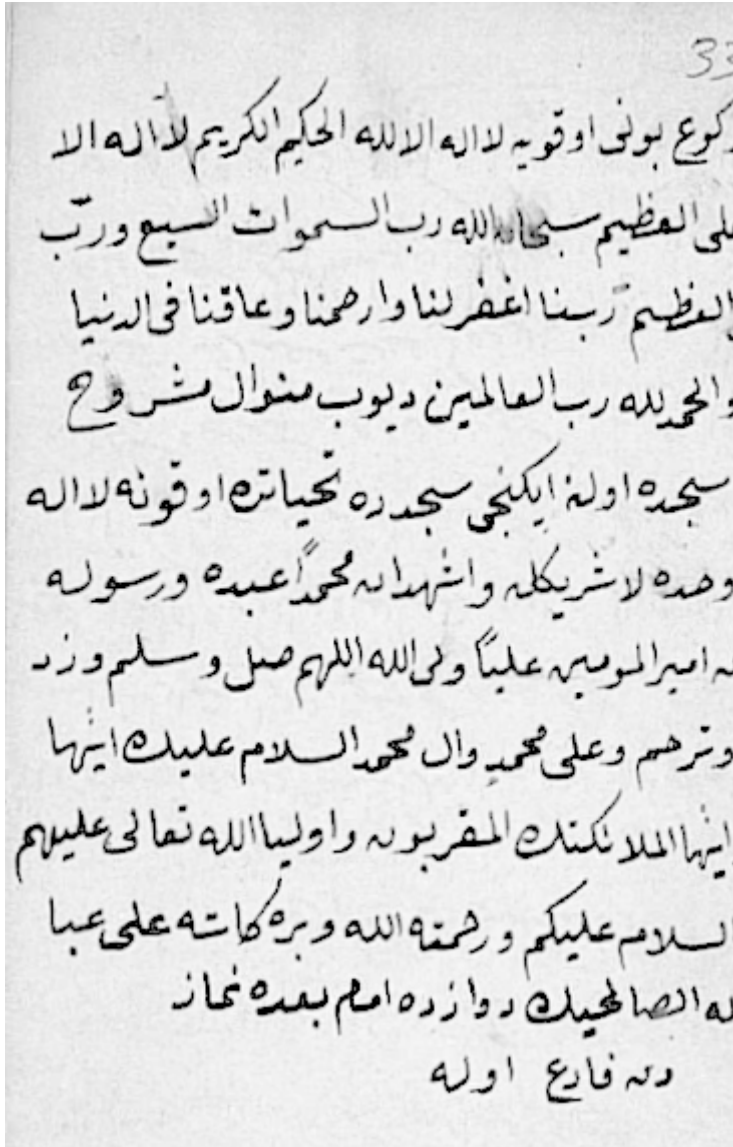 33
ركوع بونى اوقويه لا اله الا لله الحكيم الكريم لا اله الا
على العظيم سبحان الله رب السموات السبع ورب
العظيم ربنا اغفر لنا وارحمنا وعاقنا فى الدنيا
والحمد لله رب العالمين ديوب منوال مشروح
سجده اولن ايكنجى سجدده تحياتده اوقونه لا اله
وحده لا شريكله واشهدان محمداً عبده ورسوله
امير المومنين علياً ولى الله اللهم صل وسلم وزد
وترحم وعلى محمد وال محمد السلام عليك ايها
ايها الملائكتك المقربون واوليا الله تعالى عليهم
السلام عليكم ورحمته الله وبره كاته على عبا
الصالحيك دوازده امام بعده نماز
دن فارع اوله